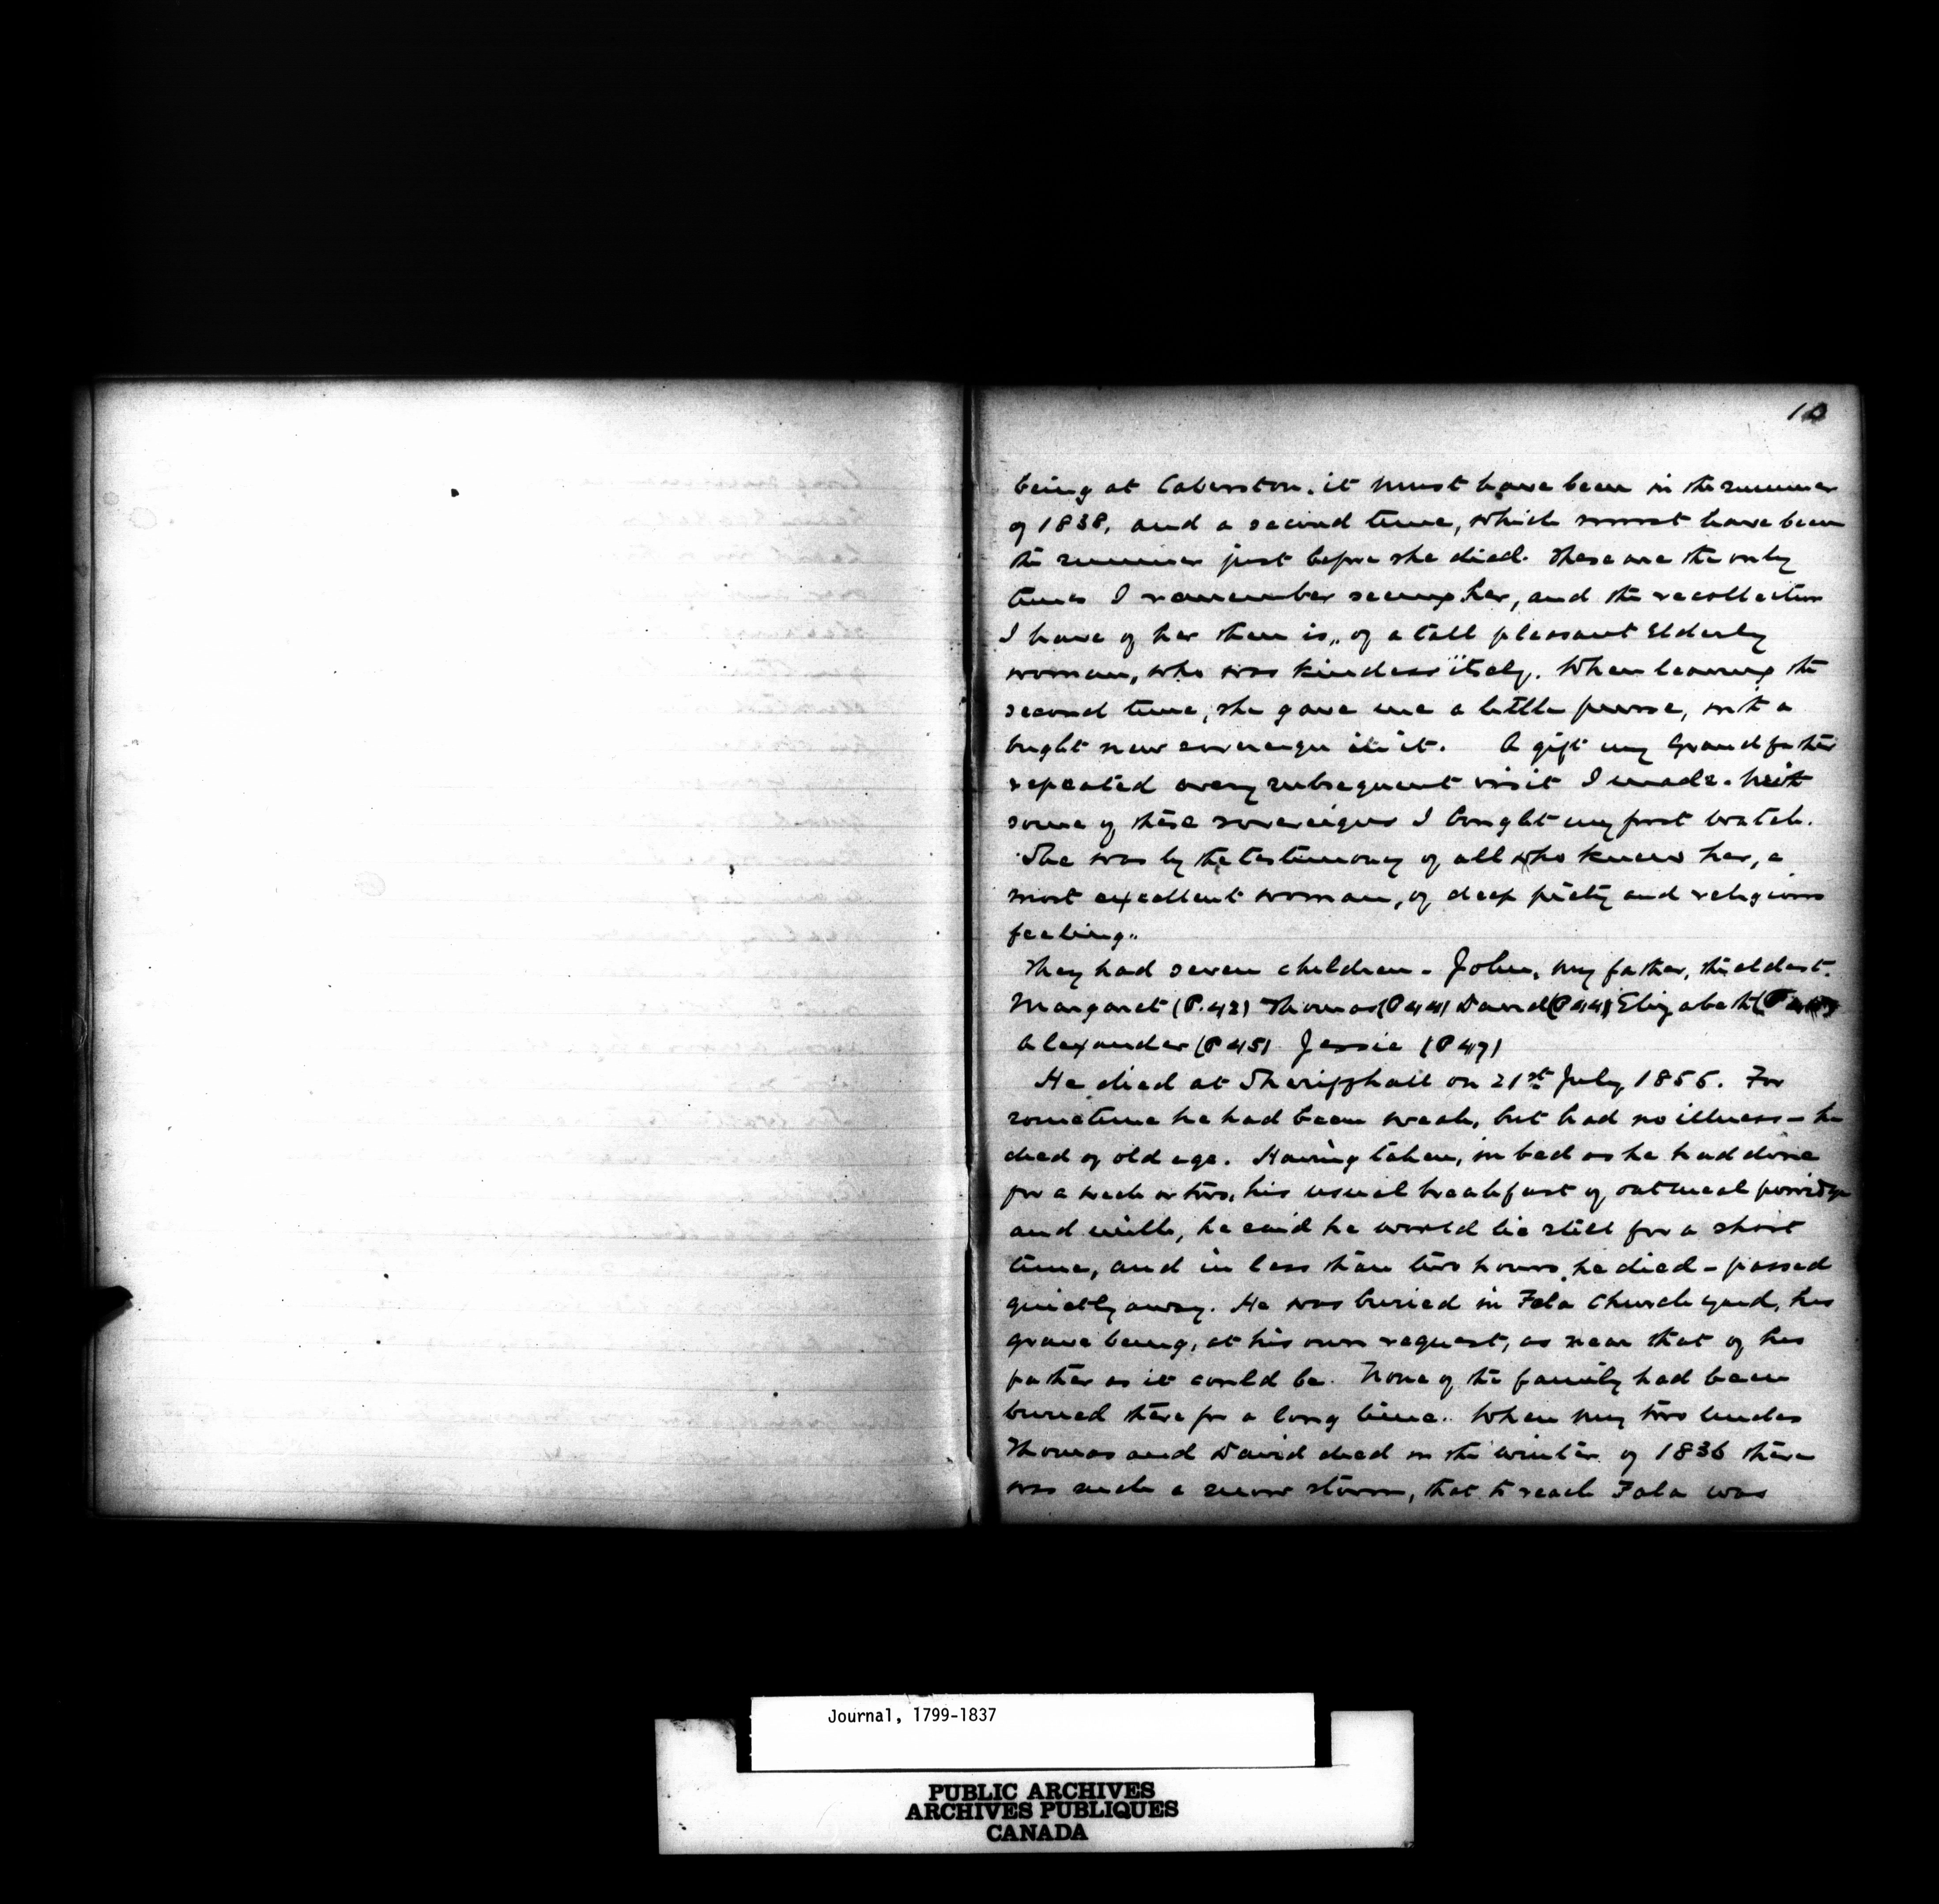 10
being at Caberston, it must have been in the summer
of 1838, and a second time, which must have been
the summer just before she died. These are the only
times I remember seeing her, and the recollection
I have of her then is, of a tall pleasant Elderly
woman, who was kindness itself. When leaving the
second time, she gave me a little purse, with a
bright new sovereign in it. A gift my Grandfather
repeated every subsequent visit I made. With
some of these sovereigns I bought my first watch.
She was by the testimony of all who knew her, a
most excellent woman, of deep piety and religious
feeling.
They had seven children - John, my father, the eldest.
Margaret (P.42) Thomas (P 44) David (P 44) Elizabeth
Alexander (P 45) Jessie (P 47)
He died at Sheriffhall on 21st July 1856. For
sometime he had been weak, but had no illness - he
died of old age. Having taken, in bed as he had done
for a week or two, his usual breakfast of oatmeal porridge
and milk, he said he would lie still for a short
time, and in less than two hours he died - passed
quietly away. He was buried in Fala Churchyard, his
grave being, at his own request, as near that of his
father as it could be. None of the family had been
buried there for a long time. When my two Uncles
Thomas and David died in the winter of 1836 there
was such a snow storm, that to reach Fala was
Journal, 1799-1837
PUBLIC ARCHIVES
ARCHIVES PUBLIQUES
CANADA